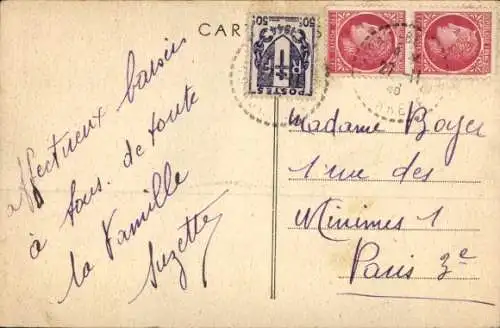 CAR
50c
50c
1944
POSTES
affectueux baisers
à tous de toute
la famille
Suzette
Madame Boyer
1 rue des
Minimes 1
Paris 3e